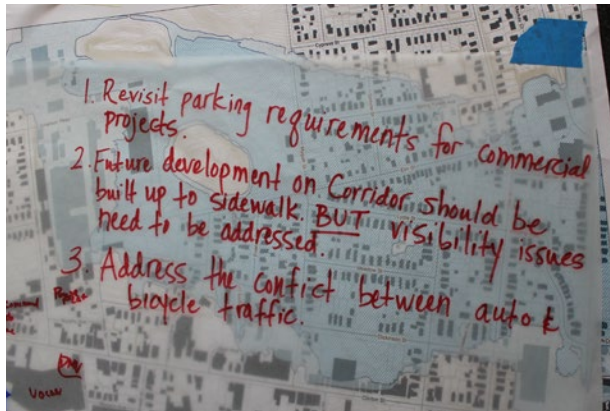 1. Revisit parking requirements for commercial
projects.
2. Future development on Corridor should be
built up to sidewalk. BUT visibility issues
need to be addressed.
3. Address the confict between auto &
bicycle traffic.